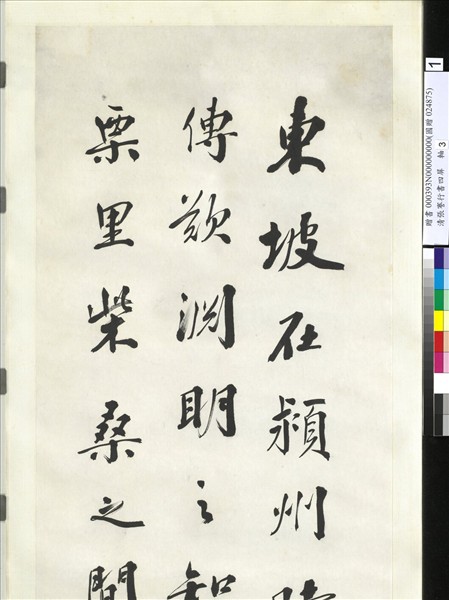 東坡在潁州
傳歎淵明之
栗里柴桑之
贈書 000393N000000000(國贈 024875)
清張謇行書四屏 軸 3
1